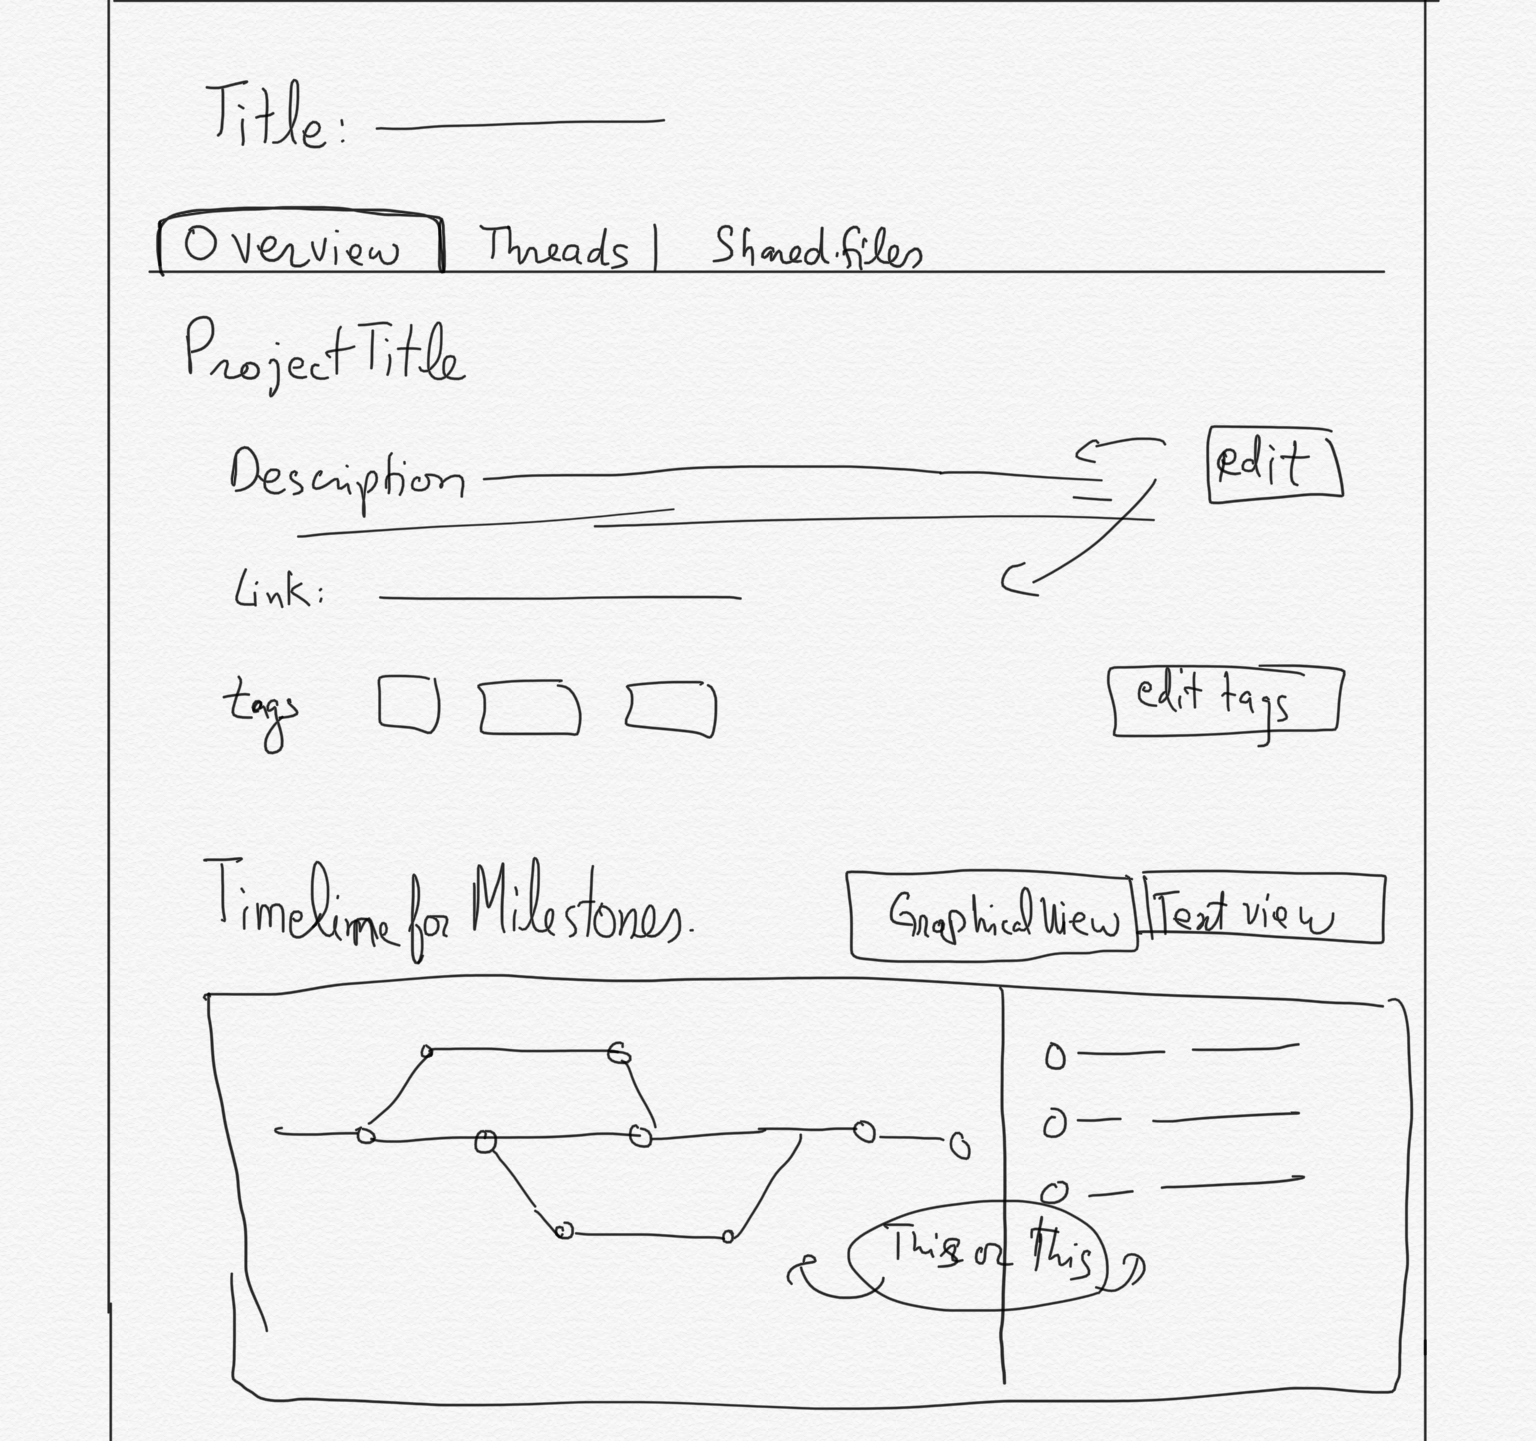 Title:
Overview Threads | Shared.files
Project Title
Description
edit
Link:
tags
edit tags
Timeline for Milestones.
Graphical View Text view
This or This